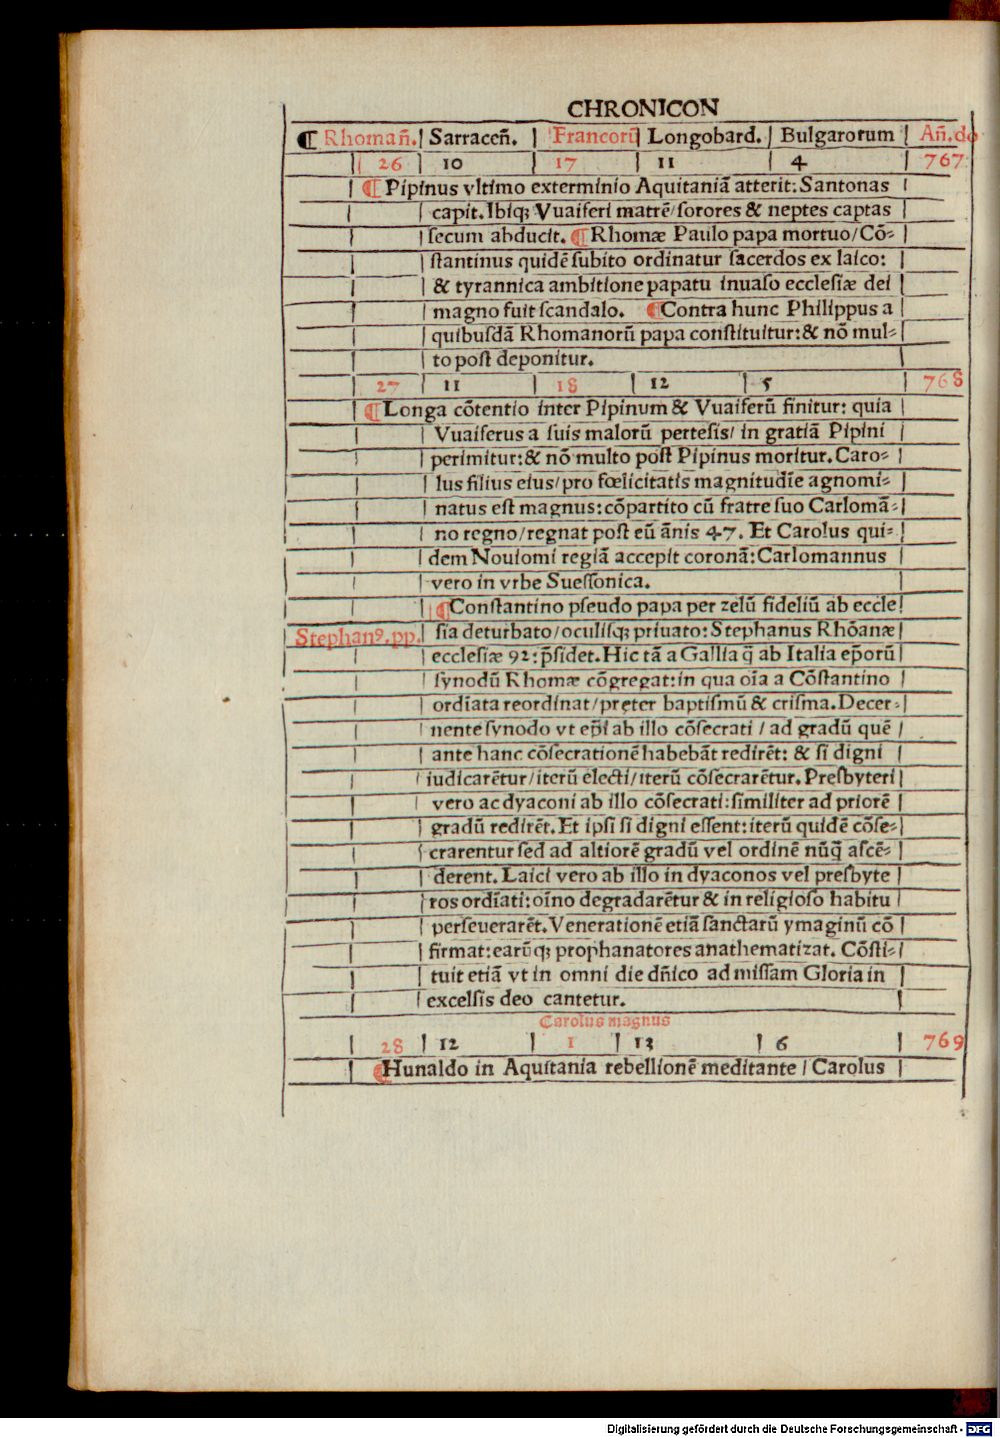 CHRONICON
¶ Rhomañ. Sarraceñ. Francorū Longobard. Bulgarorum Añ.do
26 10 17 11 4 767
¶ Pipinus vltimo exterminio Aquitaniā atterit: Santonas
capit. Ibiqꝫ Vuaiferi matrē/sorores & neptes captas
secum abducit. ¶Rhomæ Paulo papa mortuo/Cō⸗
stantinus quidē subito ordinatur sacerdos ex laico:
& tyrannica ambitione papatu inuaso ecclesiæ dei
magno fuit scandalo. ¶Contra hunc Philippus a
quibusdā Rhomanorū papa constituitur:& nō mul⸗
to post deponitur.
27 11 18 12 5 768
¶Longa cōtentio inter Pipinum & Vuaiferū finitur: quia
Vuaiferus a suis malorū pertesis/ in gratiā Pipini
perimitur:& nō multo post Pipinus moritur. Caro⸗
lus filius eius/pro fœlicitatis magnitudīe agnomi⸗
natus est magnus: cōpartito cū fratre suo Carlomā⸗
no regno/regnat post eū ānis 47. Et Carolus qui⸗
dem Nouiomi regiā accepit coronā: Carlomannus
vero in vrbe Suessonica.
¶Constantino pseudo papa per zelū fideliū ab eccle
Stephanꝰ.pp. sia deturbato/oculisqꝫ priuato: Stephanus Rhōanæ
ecclesiæ 92: p̄sidet. Hic tā a Gallia q̄ ab Italia ep̄orū
synodū Rhomæ cōgregat: in qua oīa a Cōstantino
ordīata reordinat/pręter baptismū & crisma. Decer⸗
nente synodo vt ep̄i ab illo cōsecrati / ad gradū quē
ante hanc cōsecrationē habebāt redirēt: & si digni
iudicarētur/iterū electi/iterū cōsecrarētur. Presbyteri
vero ac dyaconi ab illo cōsecrati: similiter ad priorē
gradū redirēt. Et ipsi si digni essent: iterū quidē cōse⸗
crarentur sed ad altiorē gradū vel ordinē nūq̄ ascē⸗
derent. Laici vero ab illo in dyaconos vel presbyte
ros ordīati: oīno degradarētur & in religioso habitu
perseuerarēt. Venerationē etiā sanctarū ymaginū cō
firmat: earūqꝫ prophanatores anathematizat. Cōsti⸗
tuit etiā vt in omni die dñico ad missam Gloria in
excelsis deo cantetur.
Carolus magnus
28 12 1 13 6 769
¶Hunaldo in Aquitania rebellionē meditante / Carolus
Digitalisierung gefördert durch die Deutsche Forschungsgemeinschaft - DFG